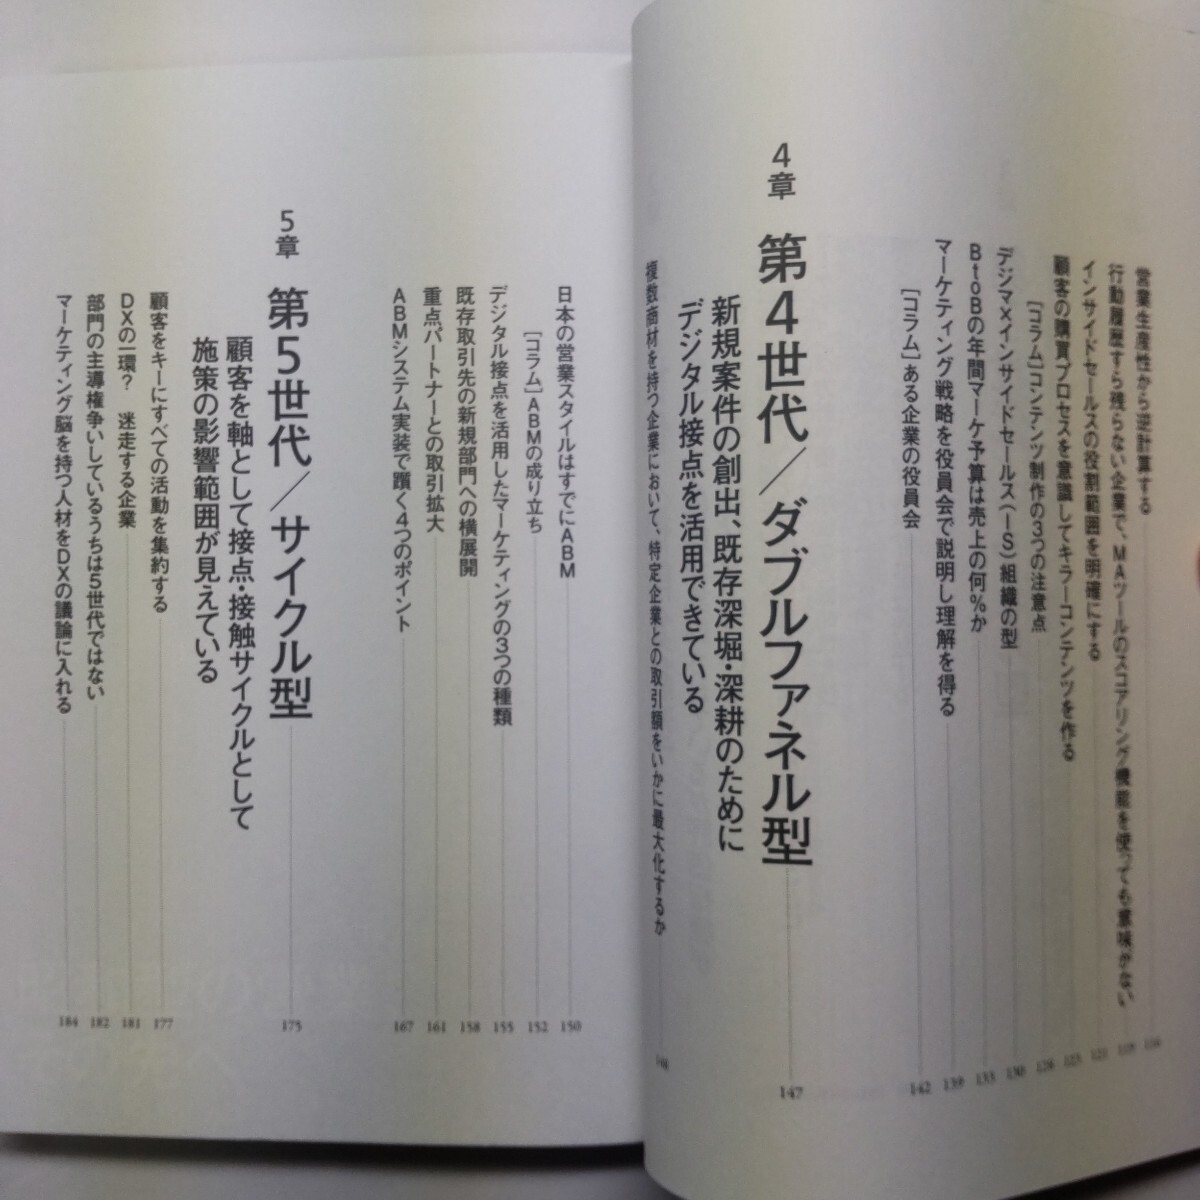 営業生産性から逆計算する 116
行動履歴すら残らない企業で、MAツールのスコアリング機能を使っても意味がない
インサイドセールスの役割範囲を明確にする
顧客の購買プロセスを意識してキラーコンテンツを作る
[コラム]コンテンツ制作の3つの注意点 128
デジマ×インサイドセールス(IS)組織の型 130
BtoBの年間マーケ予算は売上の何%か 133
マーケティング戦略を役員会で説明し理解を得る 139
[コラム]ある企業の役員会 142
4章 第4世代/ダブルファネル型 147
新規案件の創出、既存深堀・深耕のために
デジタル接点を活用できている
複数商材を持つ企業において、特定企業との取引額をいかに最大化するか 148
日本の営業スタイルはすでにABM 150
[コラム]ABMの成り立ち 152
デジタル接点を活用したマーケティングの3つの種類 155
既存取引先の新規部門への横展開 158
重点パートナーとの取引拡大 161
ABMシステム実装で躓く4つのポイント 167
5章 第5世代/サイクル型 175
顧客を軸として接点・接触サイクルとして
施策の影響範囲が見えている
顧客をキーにすべての活動を集約する 177
DXの一環? 迷走する企業 181
部門の主導権争いしているうちは5世代ではない 182
マーケティング脳を持つ人材をDXの議論に入れる 184